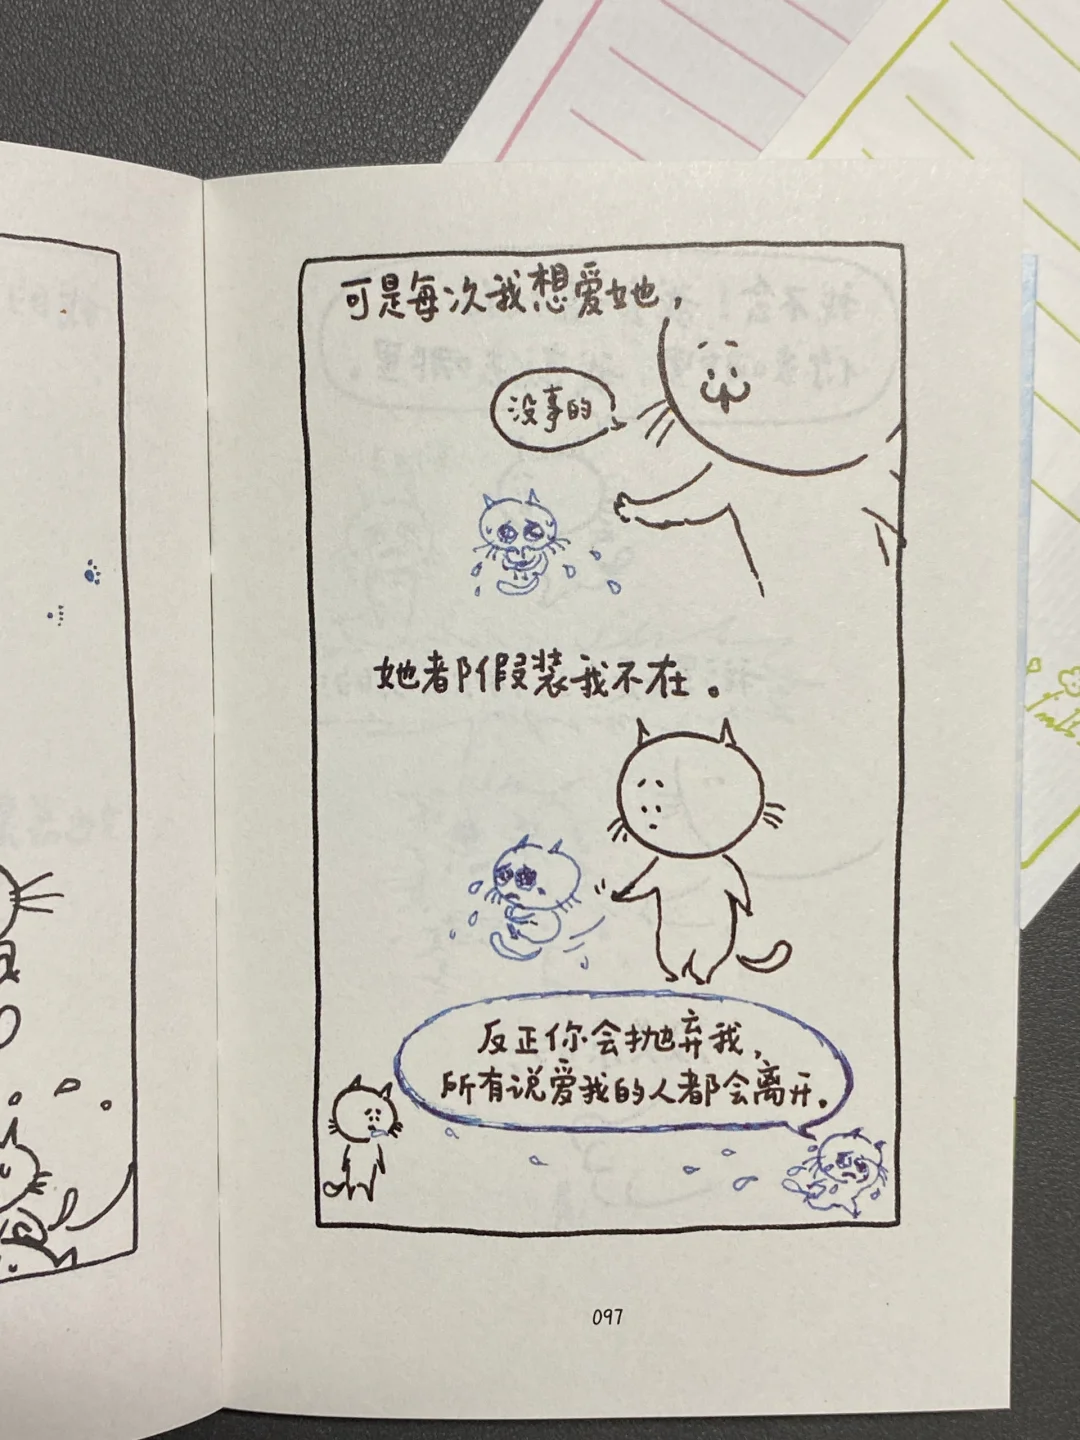 可是每次我想爱她，
没事的
她都假装我不在。
反正你会抛弃我，
所有说爱我的人都会离开。
097